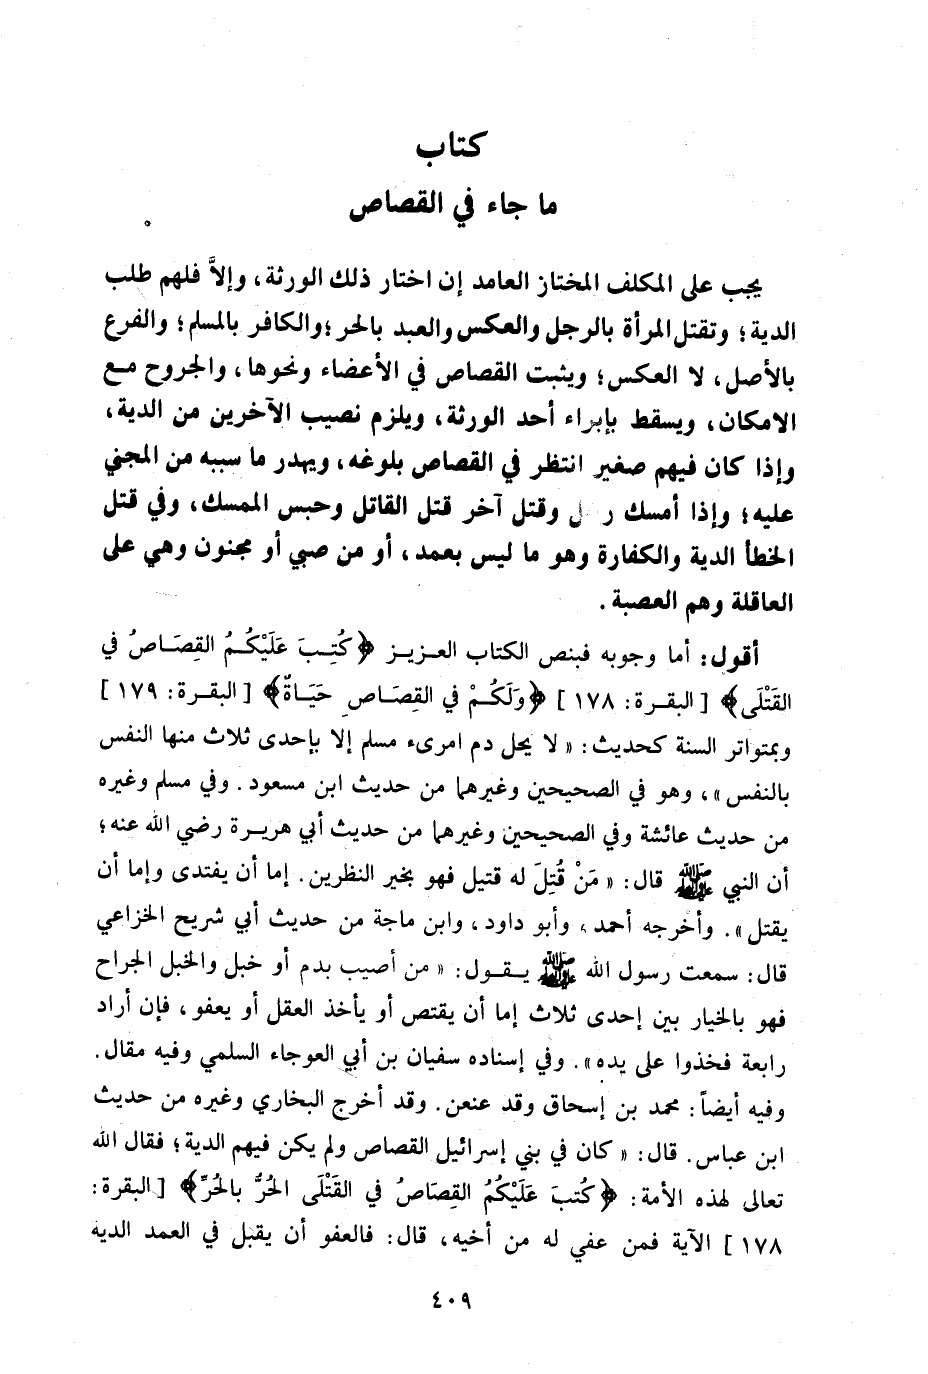 كتاب
ما جاء في القصاص
يجب على المكلف المختار العامد إن اختار ذلك الورثة، وإلاَّ فلهم طلب
الدية؛ وتقتل المرأة بالرجل والعكس والعبد بالحر؛ والكافر بالمسلم؛ والفرع
بالأصل، لا العكس؛ ويثبت القصاص في الأعضاء ونحوها، والجروح مع
الامكان، ويسقط بإبراء أحد الورثة، ويلزم نصيب الآخرين من الدية،
وإذا كان فيهم صغير انتظر في القصاص بلوغه، ويهدر ما سببه من المجني
عليه؛ وإذا أمسك وقتل آخر قتل القاتل وحبس الممسك، وفي قتل
الخطأ الدية والكفارة وهو ما ليس بعمد، أو من صبي أو مجنون وهي على
العاقلة وهم العصبة.
أقول: أما وجوبه فبنص الكتاب العزيز ﴿كُتِبَ عَلَيْكُمُ القِصَاصُ في
القَتْلَى﴾ [البقرة: ١٧٨] ﴿وَلَكُمْ في القِصَاصِ حَيَاةٌ﴾ [البقرة: ١٧٩]
وبمتواتر السنة كحديث: «لا يحل دم امرىء مسلم إلا بإحدى ثلاث منها النفس
بالنفس»، وهو في الصحيحين وغيرهما من حديث ابن مسعود. وفي مسلم وغيره
من حديث عائشة وفي الصحيحين وغيرهما من حديث أبي هريرة رضي الله عنه؛
أن النبي ﷺ قال: «مَنْ قُتِلَ له قتيل فهو بخير النظرين. إما أن يفتدى وإما أن
يقتل». وأخرجه أحمد، وأبو داود، وابن ماجة من حديث أبي شريح الخزاعي
قال: سمعت رسول الله ﷺ يقول: «من أصيب بدم أو خبل والخبل الجراح
فهو بالخيار بين إحدى ثلاث إما أن يقتص أو يأخذ العقل أو يعفو، فإن أراد
رابعة فخذوا على يده». وفي إسناده سفيان بن أبي العوجاء السلمي وفيه مقال.
وفيه أيضاً: محمد بن إسحاق وقد عنعن. وقد أخرج البخاري وغيره من حديث
ابن عباس. قال: «كان في بني إسرائيل القصاص ولم يكن فيهم الدية؛ فقال الله
تعالى لهذه الأمة: ﴿كُتبَ عَلَيْكُمُ القِصَاصُ في القَتْلَى الحُرُّ بالحُرِّ﴾ [البقرة:
١٧٨] الآية فمن عفي له من أخيه، قال: فالعفو أن يقبل في العمد الدية
٤٠٩